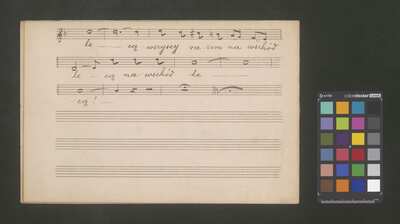 le — cą wszyscy ra zem na wschód
le — cą na wschód le —
cą! —